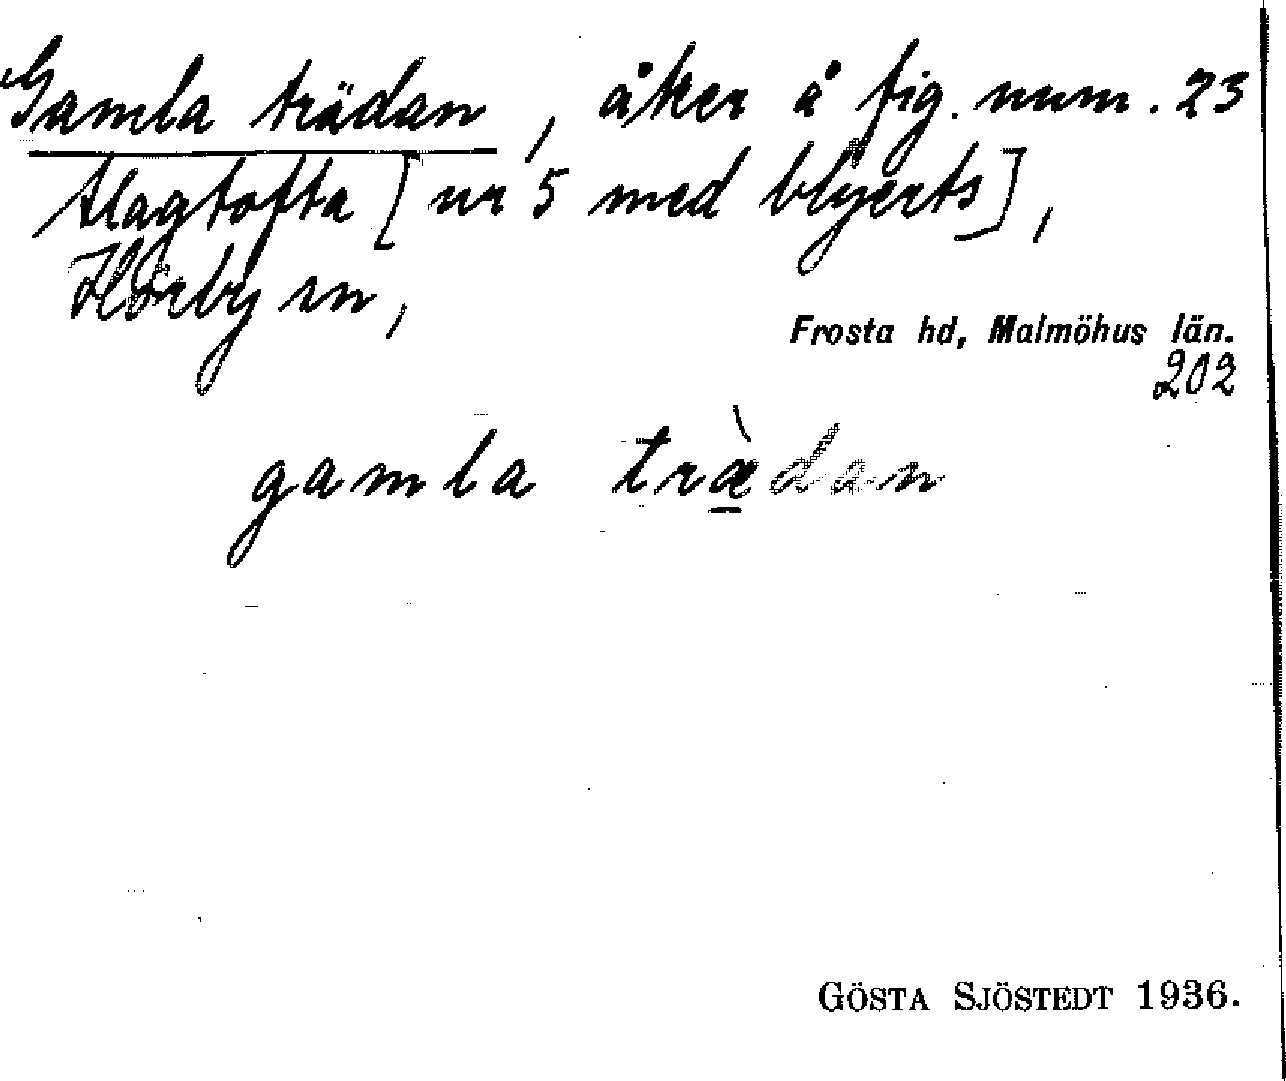 Gamla trädan, åker å fig. num. 23
Slagtofta [nr 5 med blyerts],
Hörby sn,
Frosta hd, Malmöhus län.
202
gamla træ̀dan
GÖSTA SJÖSTEDT 1936.